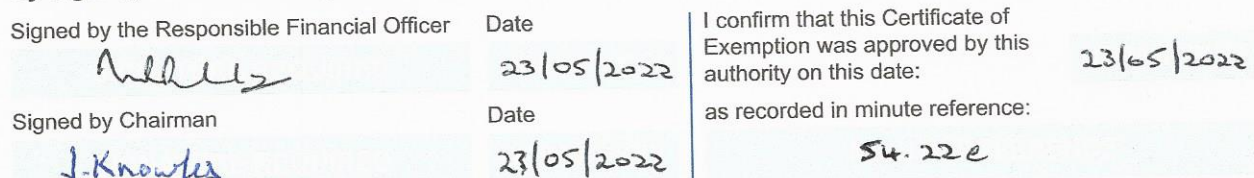 Signed by the Responsible Financial Officer
Date
23/05/2022
Signed by Chairman
Date
J. Knowles
23/05/2022
I confirm that this Certificate of
Exemption was approved by this
authority on this date:
23/05/2022
as recorded in minute reference:
54.22e